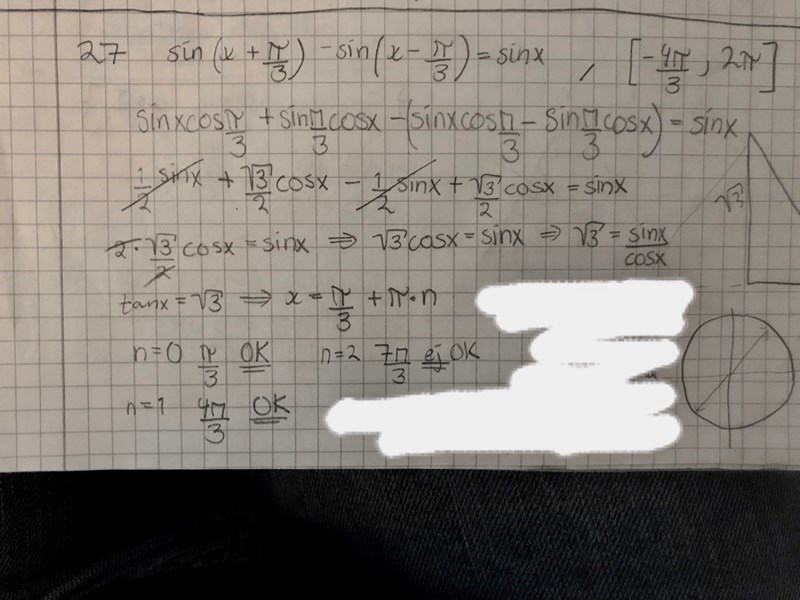 27 sin(x + π/3) - sin(x - π/3) = sinx , [-4π/3, 2π]
sinxcosπ/3 + sinπ/3cosx - (sinxcosπ/3 - sinπ/3cosx) = sinx
1/2 sinx + √3/2 cosx - 1/2 sinx + √3/2 cosx = sinx
√3
2·√3/2 cosx = sinx ⇒ √3cosx = sinx ⇒ √3 = sinx/cosx
tanx = √3 ⇒ x = π/3 + π·n
n=0 π/3 OK n=2 7π/3 ej OK
n=1 4π/3 OK